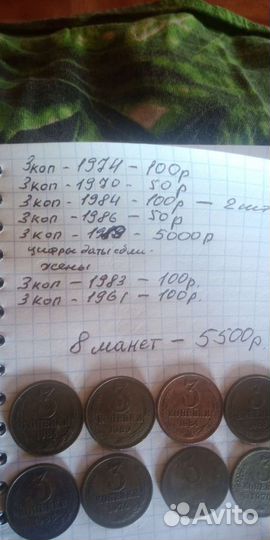 3коп - 1974 - 100р
3коп - 1970 - 50р
3коп - 1984 - 100р - 2шт
3коп - 1986 - 50р
3коп - 1989 - 5000р
цифры даты сбли-
жены
3коп - 1983 - 100р.
3коп - 1961 - 100р.
8 манет - 5500р.
3 3 3 3
КОПЕЙКИ КОПЕЙКИ КОПЕЙКИ
3 3 3 3
КОПЕЙКИ КОПЕЙКИ
Avito